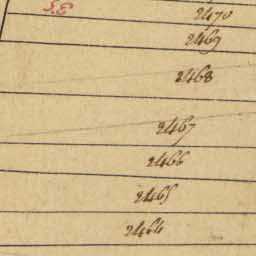 S.E
2470
2469
2468
2467
2466
2465
2464